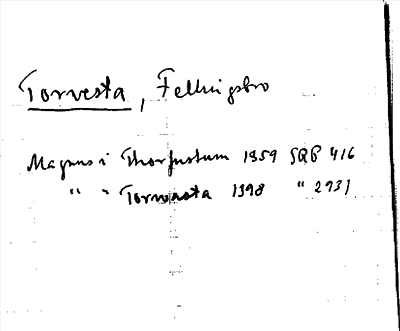 Torvesta, Fellingsbro
Magnus i Thorfustum 1359 SRP 416
" " Torvesta 1398 " 2931